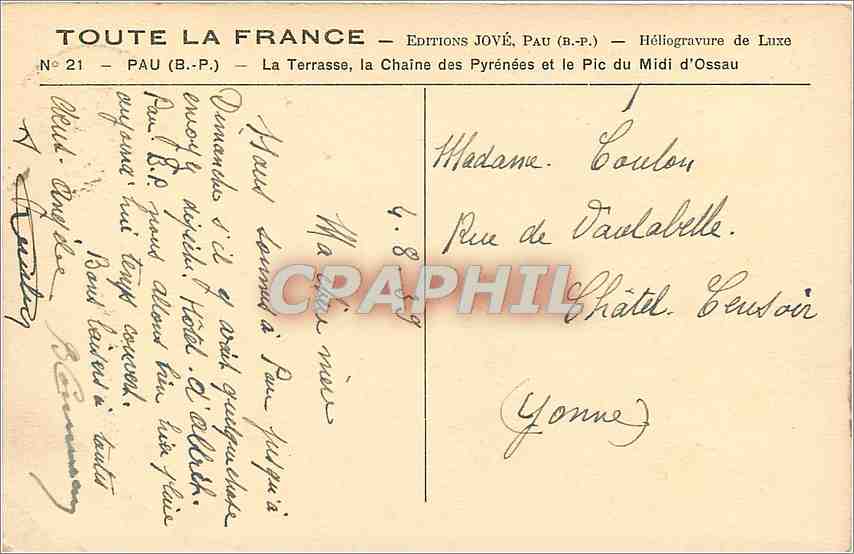 TOUTE LA FRANCE — EDITIONS JOVÉ, PAU (B.-P.) — Héliogravure de Luxe
N° 21 — PAU (B.-P.) — La Terrasse, la Chaîne des Pyrénées et le Pic du Midi d'Ossau
4.8.39
Ma chère mère
Nous sommes à Pau jusqu'à
Dimanche s'il y avait quelquechose
envoyé dépêche Hôtel d'Albret.
Pau. B.P. nous allons bien hier pluie
aujourd'hui temps couvert.
Bons baisers à toutes
deux. Andrée
Madame. Coulon
Rue de Vaulabelle.
Châtel. Censoir
(Yonne)
CPARPHIL